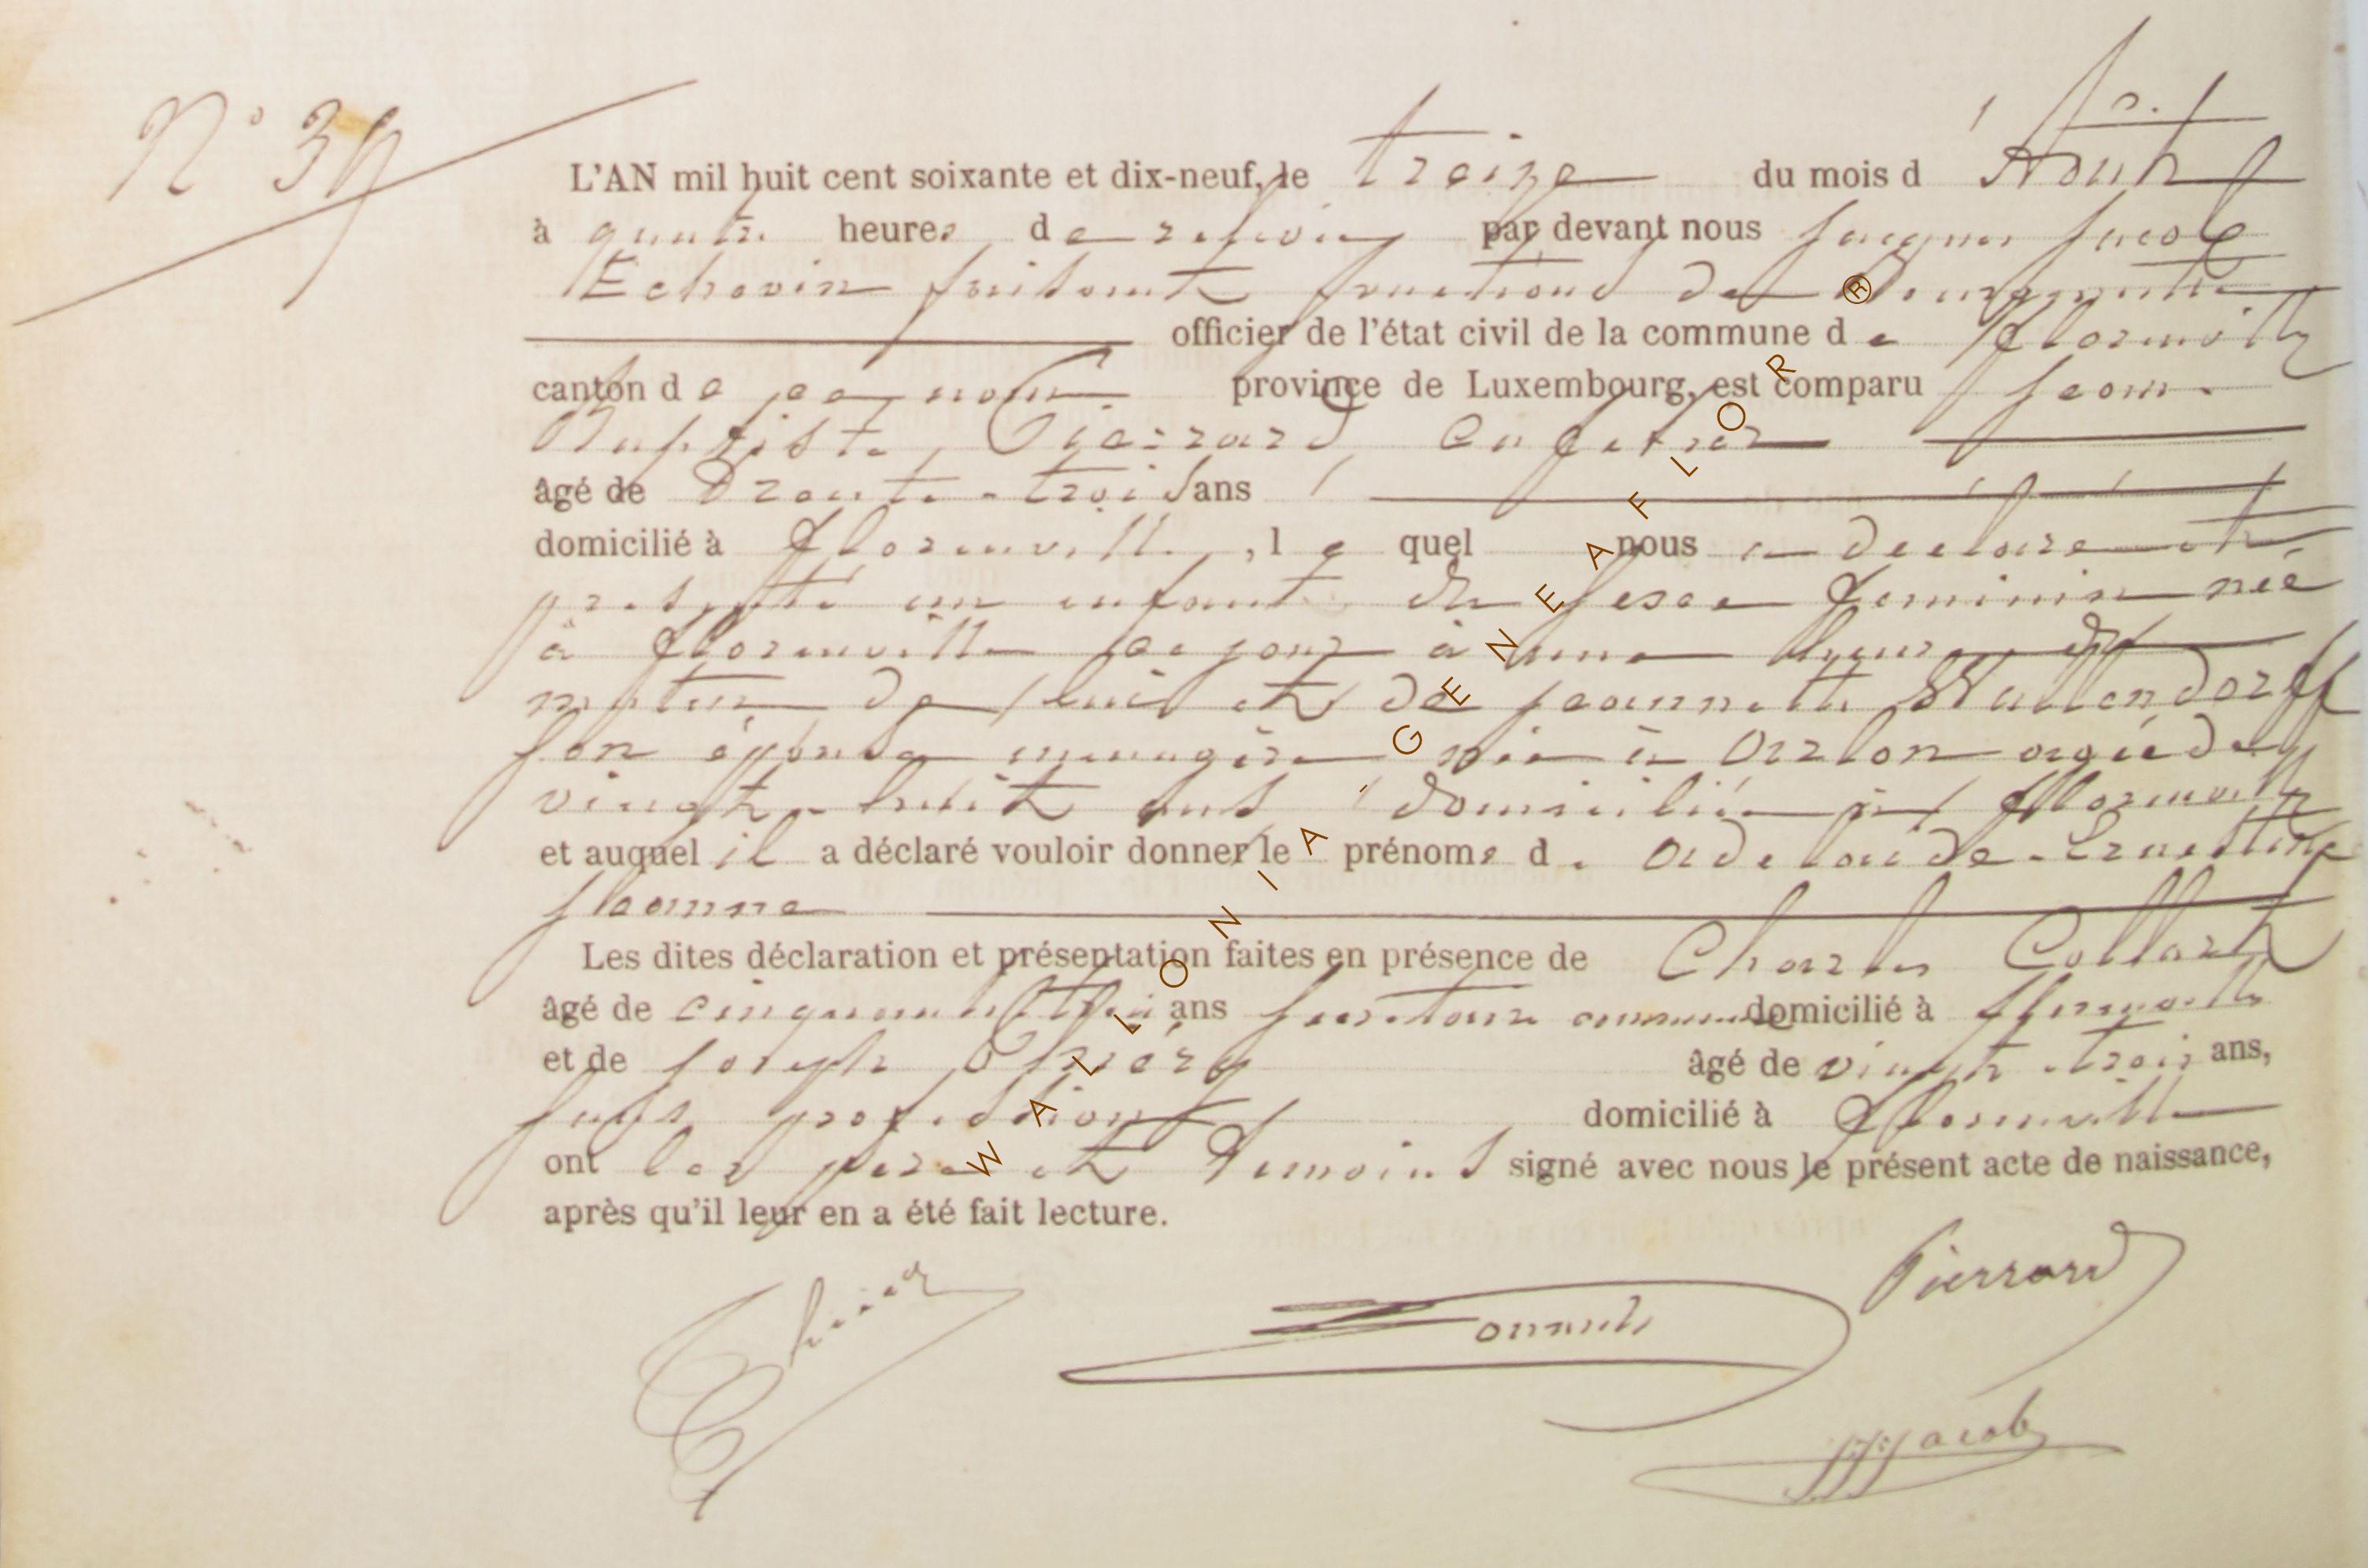 N° 39
L'AN mil huit cent soixante et dix-neuf, le treize du mois d'Août
à quatre heures de relevée par devant nous Jacques Jacob
Echevin faisant fonctions de Bourgmestre
officier de l'état civil de la commune de Florenville
canton de ce nom province de Luxembourg, est comparu Jean
Baptiste Pierrard, cafetier
âgé de Trente-trois ans
domicilié à Florenville, lequel nous a déclaré et
présenté un enfant du sexe feminin née
à Florenville ce jour à une heure du
matin de lui et de Jeannette Wallendorff
son épouse menagère née à Arlon agée de
vingt-huit ans domiciliée à Florenville
et auquel il a déclaré vouloir donner le prénoms de Adelaïde-Ernestine
Jeanne
Les dites déclaration et présentation faites en présence de Charles Collart
âgé de cinquante trois ans secrétaire communal domicilié à Florenville
et de Joseph Thiéry âgé de vingt-trois ans,
sans profession domicilié à Florenville
ont les père et Temoins signé avec nous le présent acte de naissance,
après qu'il leur en a été fait lecture.
Pierrard
JJJacob
WALLONIA GENEAFLOR ®